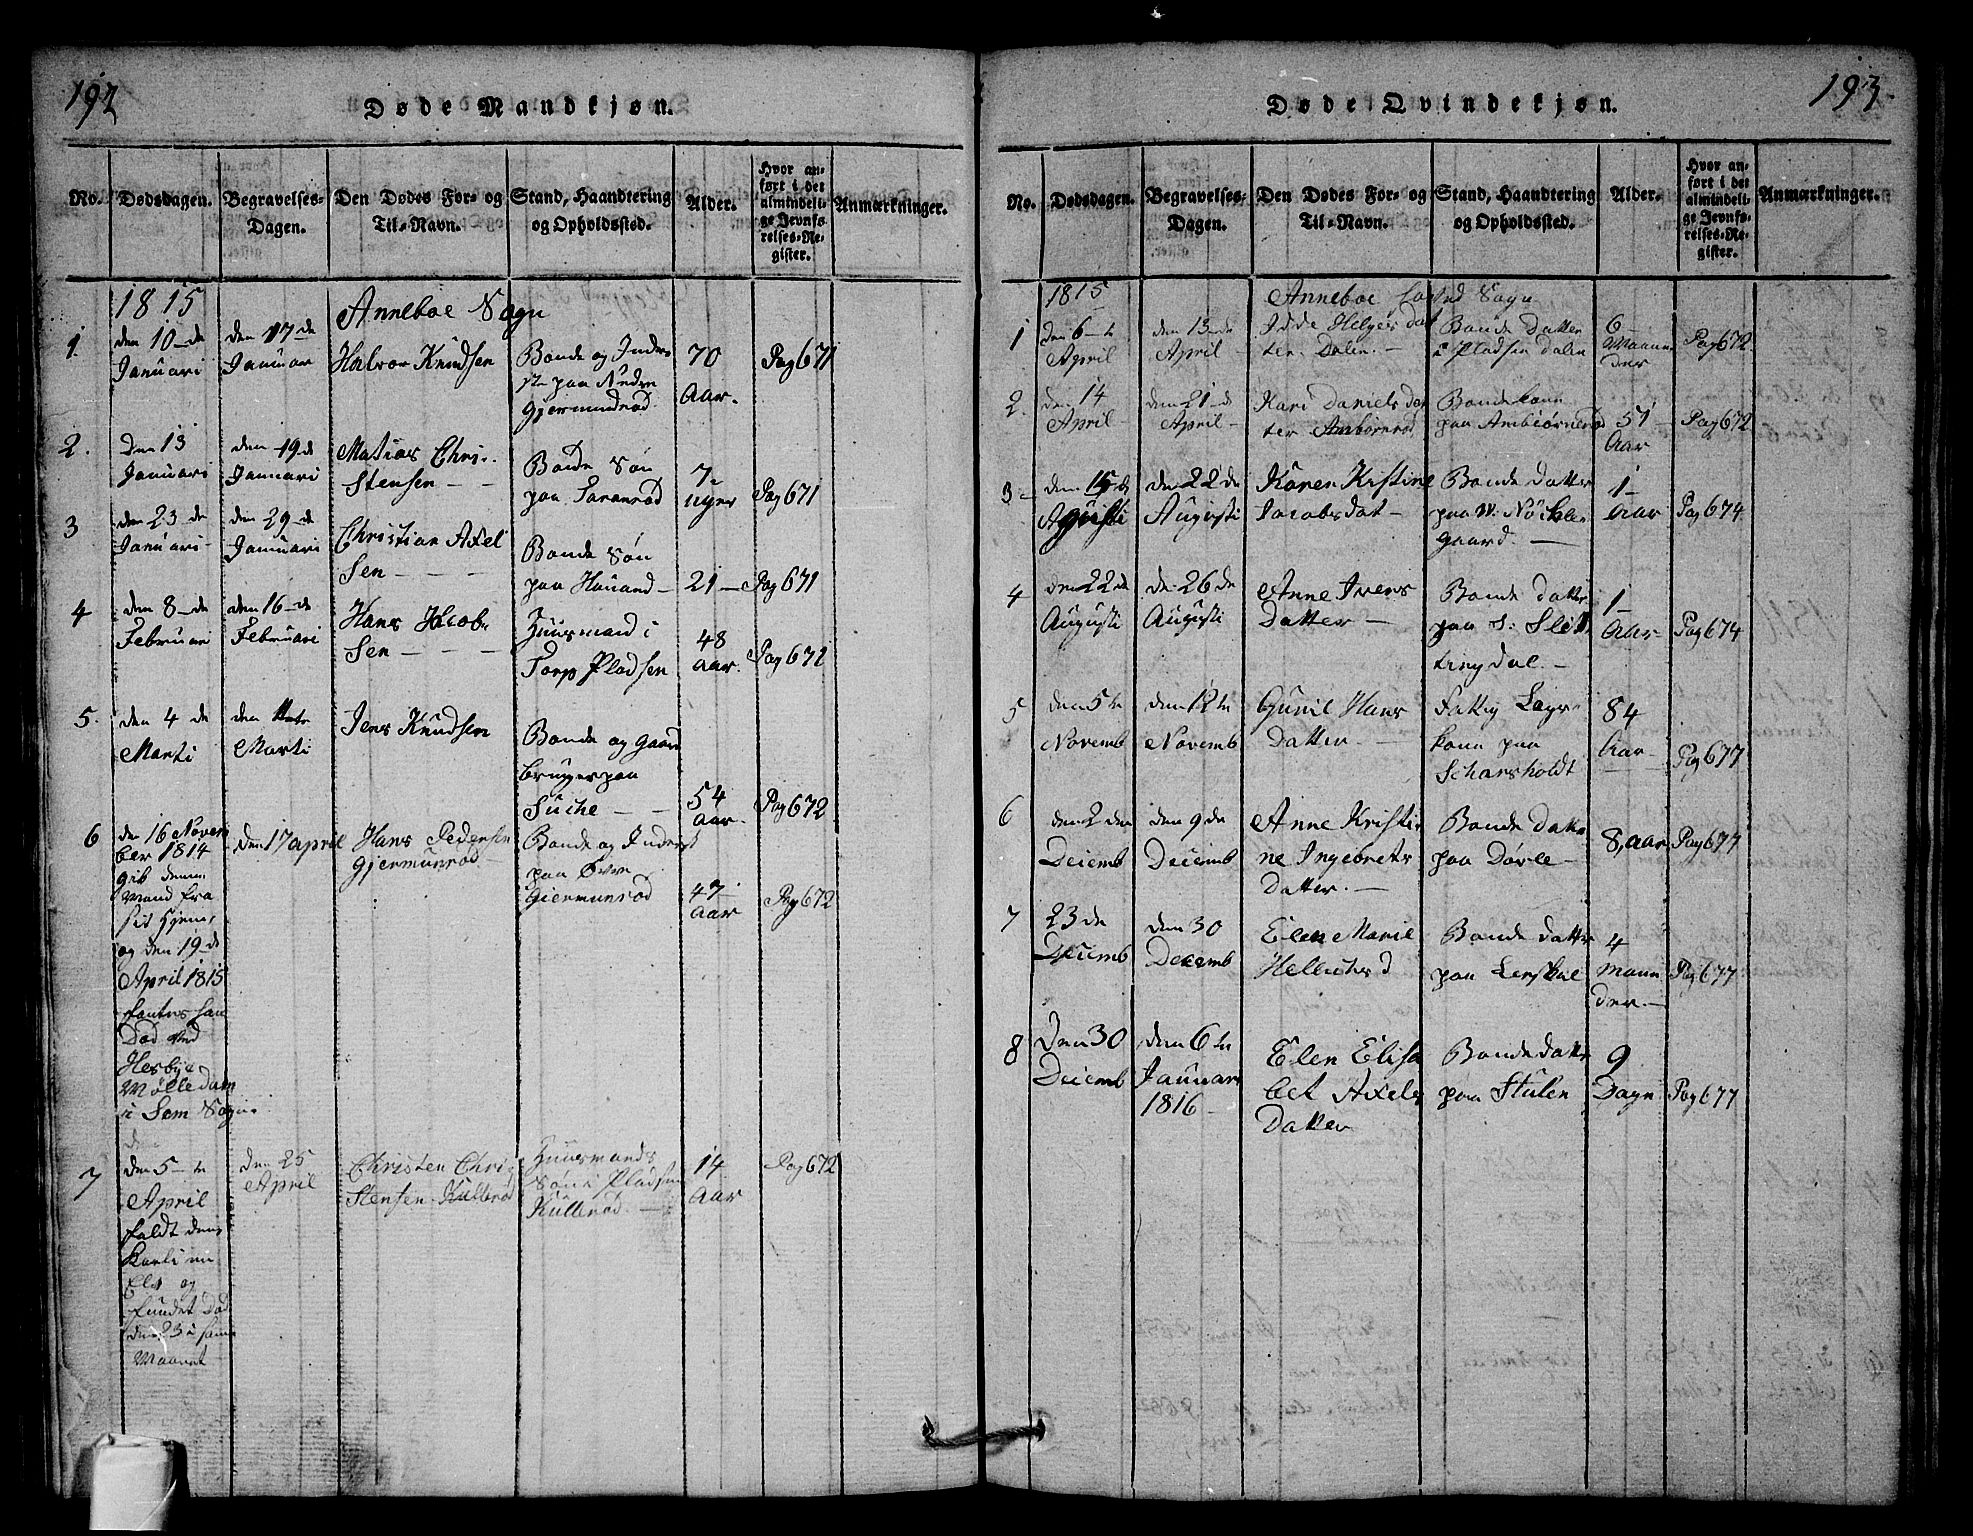 192
Døde Mandkjøn.
No.
Dødsdagen.
Begravelses-
Dagen.
Den Dødes For- og
Til-Navn.
Stand, Haandtering
og Opholdssted.
Alder.
Hvor an-
ført i det
almindeli-
ge Jevnfø-
relses-Re-
gister.
Anmærkninger.
1815
Anneboe Sogn
1.
den 10-de
Januari
den 17 de
Januar
Halvor Knudsen
Bonde og Inder-
st paa Nedre
Gjermundrød
70
Aar.
Pag 671
2.
Den 13
Januari
den 19 de
Januari
Matias Chri-
stensen
Bonde Søn
paa
7-
Uger
Pag 671
3
den 23 de
Januari
den 29-de
Januari
Christian Axel
Sen
Bonde Søn
paa Hauand
21
Pag 671
4
den 8-de
Februari
den 16-de
Februari
Hans Jacob
Sen
Huusmand i
Torp Pladsen
48
Aar.
Pag 672
5.
den 4 de
Marti
den
Marti
Jens Knudsen
Bonde og Gaard
bruger paa
Suche
54
Aar.
Pag 672
6
den 16 Novem
ber 1814
gik denne
Mand fra
sit Hjem,
og den 19-de
April 1815
fantes han
Død ved
Hesbye
Mølle Dam
i Sem Sogn.
den 17 april
Hans Pedersen
Gjermunrød
Bonde og Inderst
paa Øvre
Giermunrød
47
Aar
Pag 672
7
den 5-te
April
faldt den
Karl i en
Elv og
fundet Død
den 23 i samme
Maanet
den 25
April
Christen Chri
stensen Kullerød
Huusmands
Søn i Pladsen
Kullerød.
14
Aar
Pag 672
193
Døde Qvindekjøn.
No.
Dødsdagen.
Begravelses-
Dagen.
Den Dødes For- og
Til-Navn.
Stand, Haandtering
og Opholdssted.
Alder.
Hvor an-
ført i det
almindeli-
ge Jevnfø-
relses-Re-
gister.
Anmærkninger.
1815
Anneboe Sogn
1
den 6-te
April
den 13-de
April
Idde Helgers dat
ter. Dalen.
Bonde Datter
i Pladsen Dalen
6-
Maane
der
Pag 672
2.
den 14
April
den 21-de
April
Kari Daniels dat
ter Ambiørnrød
Bondekone
paa Ambiørnerød
57
Aar
Pag 672
3-
den 15 de
Augusti
den 22 de
Augusti
Karen Kristine
Jacobsdat
Bonde datter
paa W: Nöckle
gaard.
1-
Aar
Pag 674
4
den 22 de
Augusti
den 26 de
Augusti
Anne Ivers
Datter
Bonde datter
paa S: Slet
tingdal.
1-
Aar-
Pag 674
5
den 5te
Novemb
den 12 te
Novemb
Gunil Hans
Datter
Fattig Lægs-
kone paa
Scharsholdt
84
Aar
Pag 677
6
den 2 den
Deiemb
den 9 de
Deiemb
Anne Kristi
ne Ingebrets
Datter.
Bonde Datter
paa Dørle
8, aar
Pag 677
7
23 de
Deiemb
den 30
Decemb
Elen Marie
Hellichs d
Bonde datter
paa Lerskal
4
Maan
der
Pag 677
8
Den 30
Deiemb
den 6 te
Januar
1816
Elen Elisa
bet Axels
Datter
Bonde datter
paa Stulen
9
Dage
Pag 677